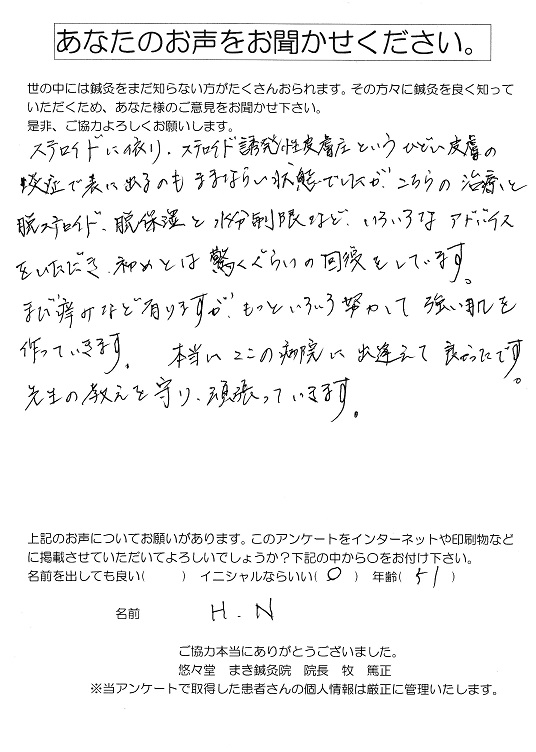 あなたのお声をお聞かせください。
世の中には鍼灸をまだ知らない方がたくさんおられます。その方々に鍼灸を良く知って
いただくため、あなた様のご意見をお聞かせ下さい。
是非、ご協力よろしくお願いします。
ステロイドに依り、ステロイド誘発性皮膚症というひどい皮膚の
炎症で表に出るのもままならい状態でしたが、こちらの治療と
脱ステロイド、脱保湿と水分制限など、いろいろなアドバイス
をいただき、初めとは驚くぐらいの回復をしています。
まだ痒みなど有りますが、もっといろいろ努力して強い肌を
作っていきます。本当にここの病院に出逢えて良かったです。
先生の教えを守り、頑張っていきます。
上記のお声についてお願いがあります。このアンケートをインターネットや印刷物など
に掲載させていただいてよろしいでしょうか？下記の中から〇をお付け下さい。
名前を出しても良い(　　) イニシャルならいい(〇) 年齢(51)
名前 H.N
ご協力本当にありがとうございました。
悠々堂 まき鍼灸院 院長 牧 篤正
※当アンケートで取得した患者さんの個人情報は厳正に管理いたします。